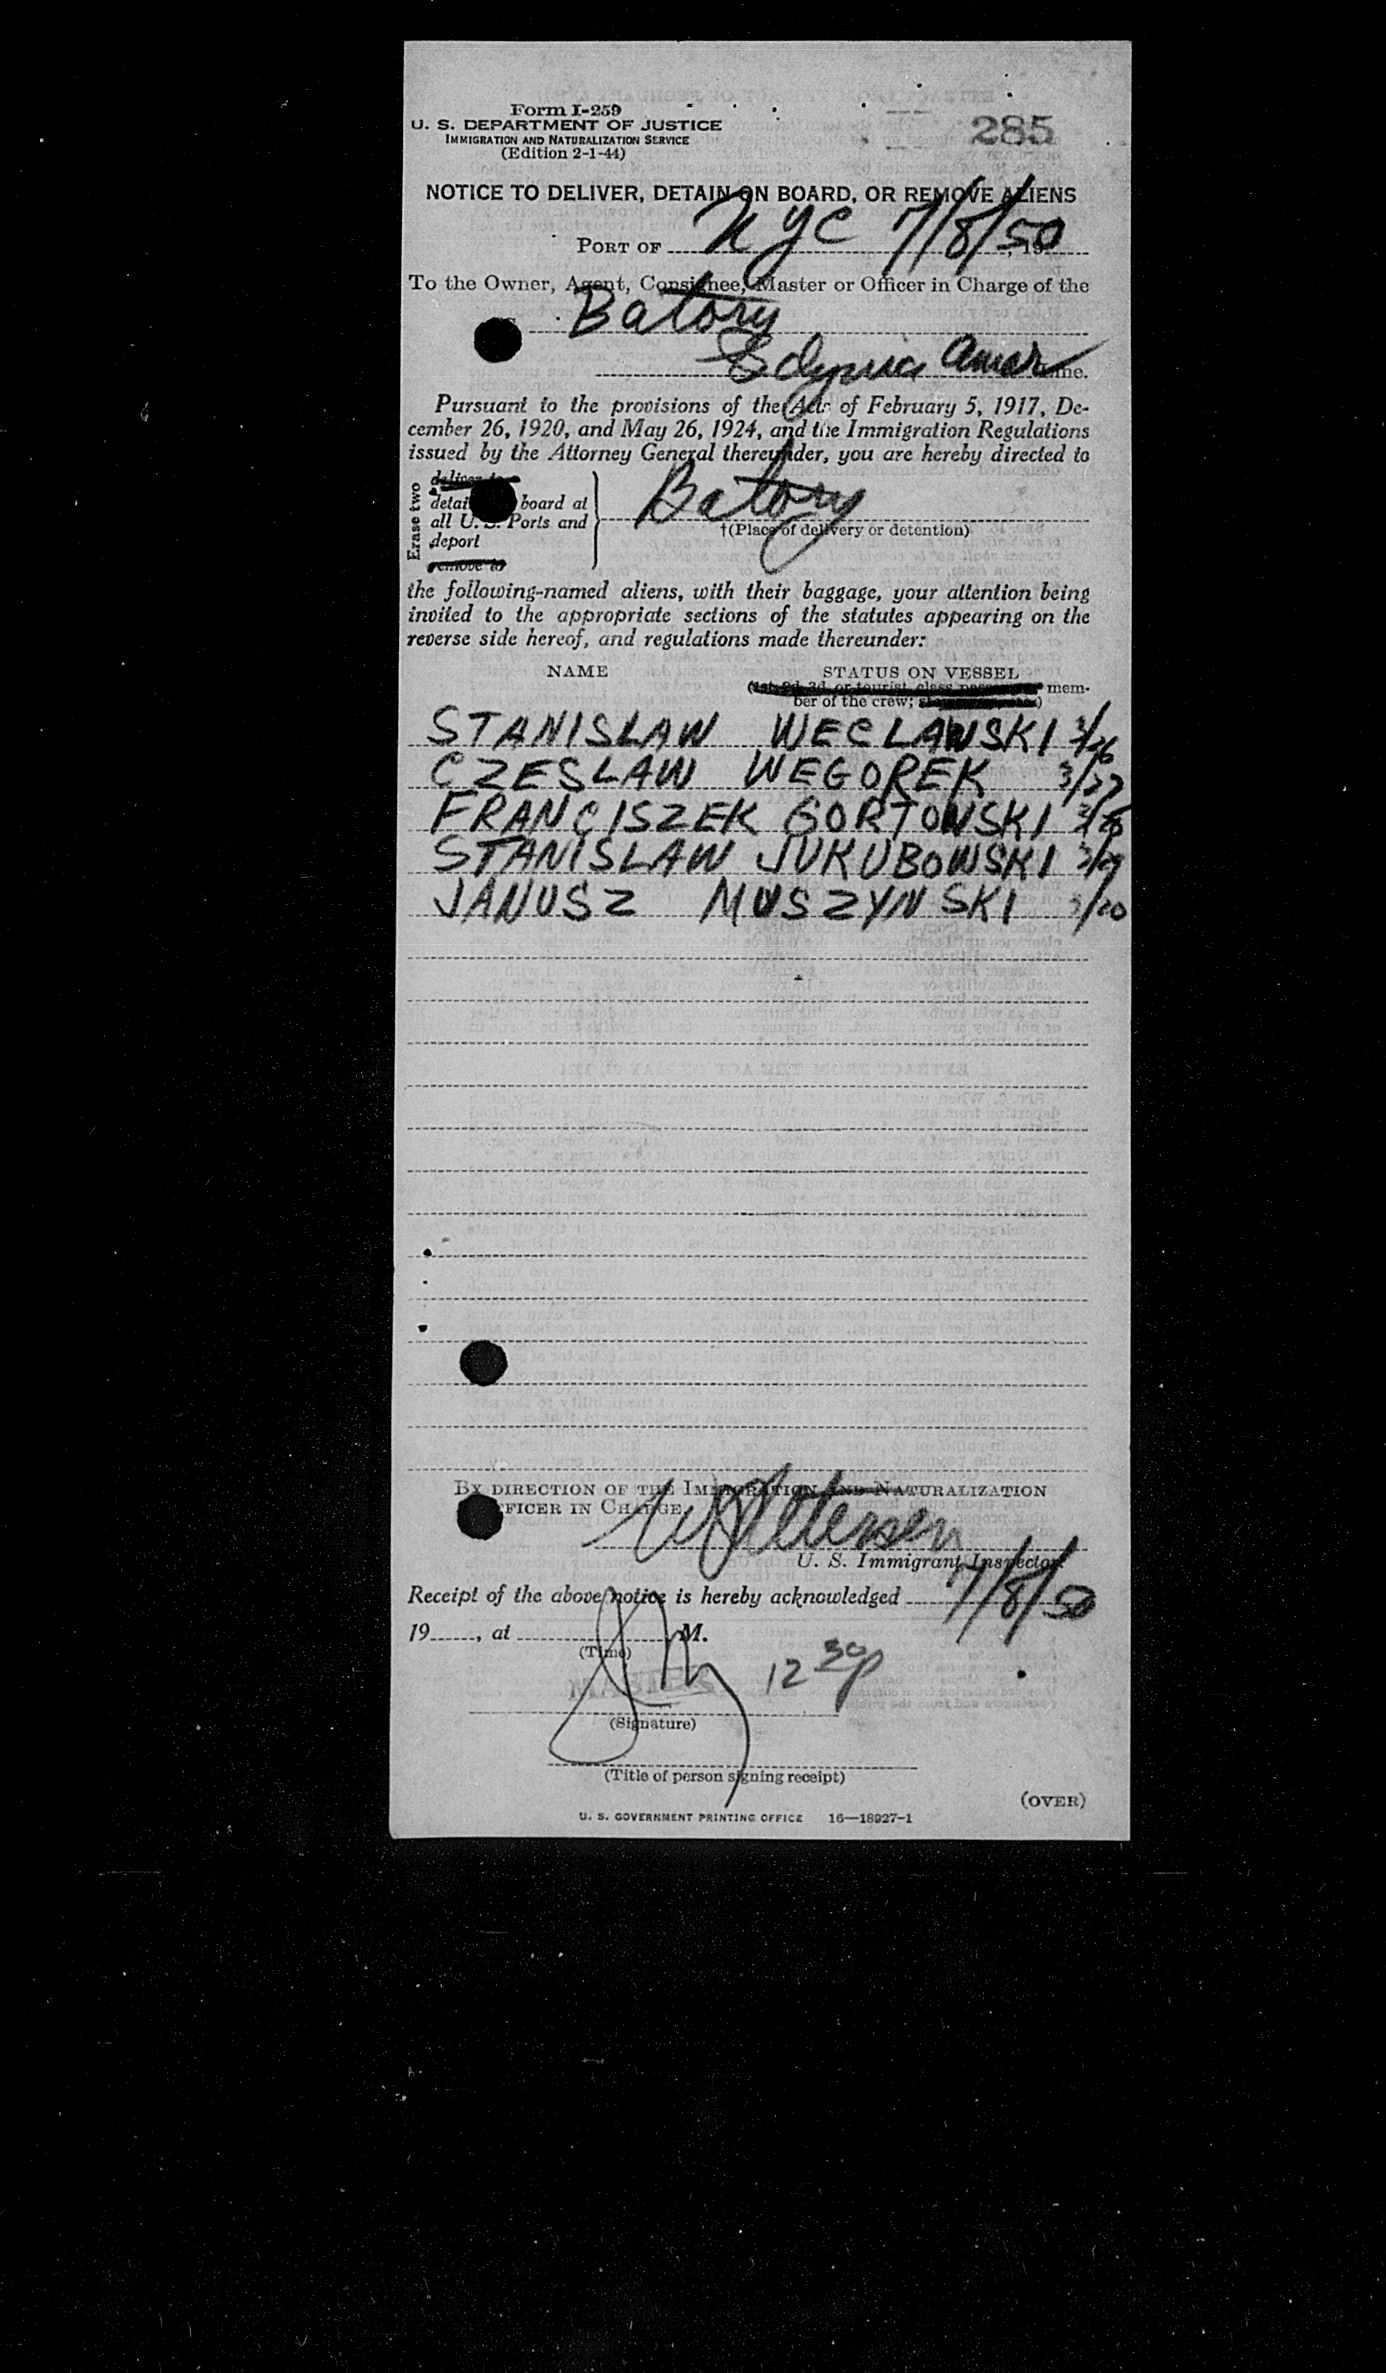 Form I-259
285
U. S. DEPARTMENT OF JUSTICE
IMMIGRATION AND NATURALIZATION SERVICE
(Edition 2-1-44)
NOTICE TO DELIVER, DETAIN ON BOARD, OR REMOVE ALIENS
PORT OF NYC 7/8/50, 19
To the Owner, Agent, Consignee, Master or Officer in Charge of the
Batory
Gdynia Amer Line.
Pursuant to the provisions of the Acts of February 5, 1917, De-
cember 26, 1920, and May 26, 1924, and the Immigration Regulations
issued by the Attorney General thereunder, you are hereby directed to
Erase two
deliver to
detain board at
all U. S. Ports and
deport
remove to
Batory
†(Place of delivery or detention)
the following-named aliens, with their baggage, your attention being
invited to the appropriate sections of the statutes appearing on the
reverse side hereof, and regulations made thereunder:
NAME STATUS ON VESSEL
(1st, 2d, 3d, or tourist class passenger mem-
ber of the crew; )
STANISLAW WECLAWSKI 3/26
CZESLAW WEGOREK 3/27
FRANCISZEK GORTOWSKI 3/28
STANISLAW JUKUBOWSKI 3/29
JANUSZ MUSZYNSKI /20
BY DIRECTION OF THE IMMIGRATION AND NATURALIZATION
OFFICER IN CHARGE.
Petersen
U. S. Immigrant Inspector
Receipt of the above notice is hereby acknowledged 7/8/50
19, at M.
(Time)
12 30p
(Signature)
(Title of person signing receipt)
(OVER)
U. S. GOVERNMENT PRINTING OFFICE 16—18927-1